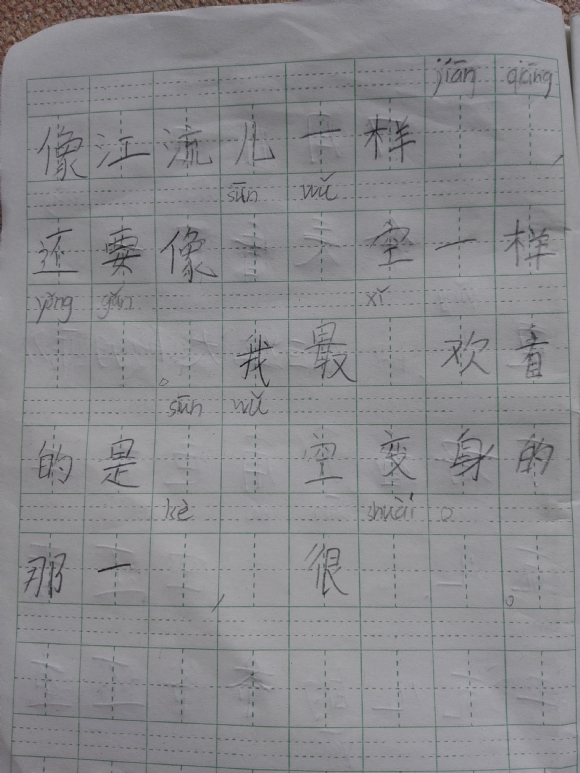 jiān qiāng
像江流儿一样，
sūn wǔ
还要像空一样
yǒng gǎn xǐ
。我最欢看
sūn wǔ
的是空变身的
kè shuài
那一，很。